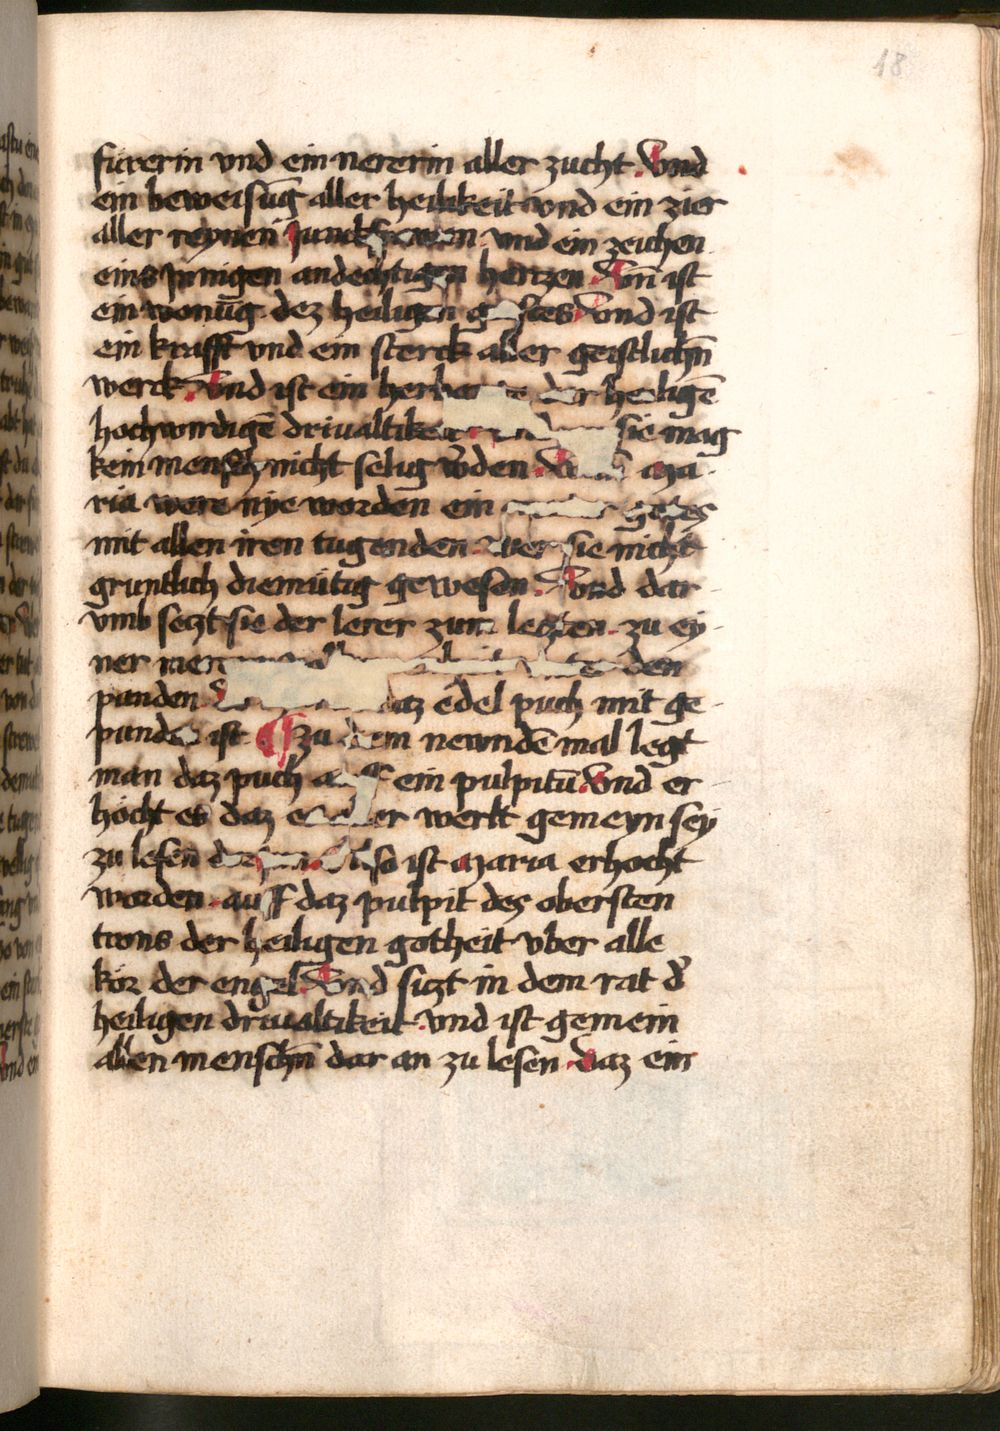 18
fürerin vnd ein nererin aller zucht. Vnd
ein beweisūg aller heilikeit vnd ein zier
aller reynen Junckfrawen. vnd ein zeichen
eins Jnnigen andechtigen hertzen. Vn̄ ist
ein wonūg dez heiligen geistes. Vnd ist
ein krafft vnd ein sterck aller geistlichn̄
werck. Vnd ist ein der heiligē
hochwirdigē driualtikeit sie mag
kein mensch nicht selig w̄den. ma-
ria were nye worden ein gotes
mit allen iren tugenden. wer sie nicht
gruntlich diemütig gewesen. Vnd dar-
vmb setzt sie der lerer zum letzten. zu ey-
ner den
panden daz edel puch mit ge-
panden ist. Zu dem newndē mal legt
man daz puch auff ein pulpitū. Vnd er-
höcht es daz es der werlt gemeyn sey
zu lesen Also ist Maria erhocht
worden. auff daz pulpit des obersten
trons der heiligen gotheit vber alle
kör der engel. Vnd siczt in dem rat d̄
heiligen driualtikeit. vnd ist gemein
allen menschn̄ dar an zu lesen. daz ein